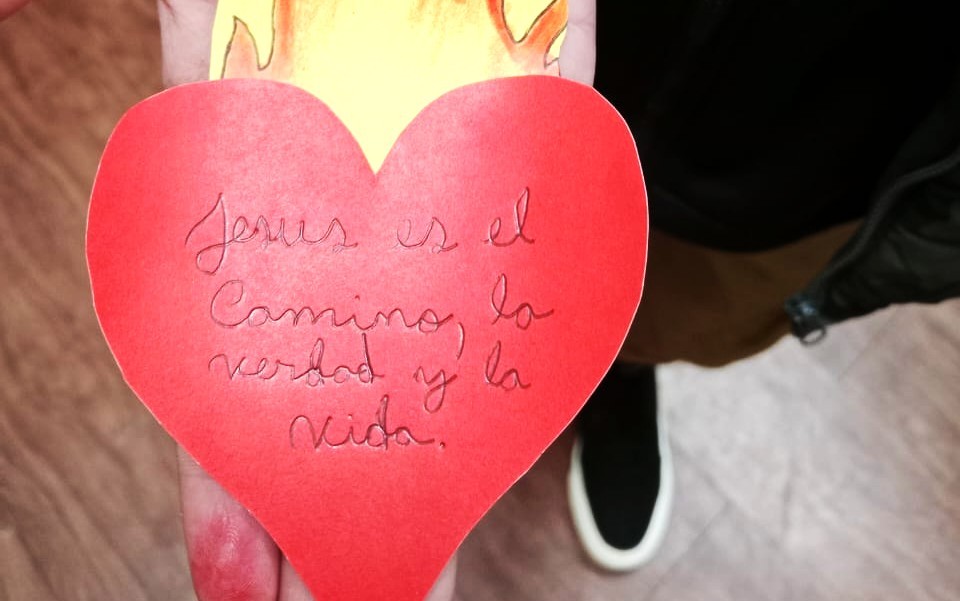 Jesus es el
Camino, la
verdad y la
vida.